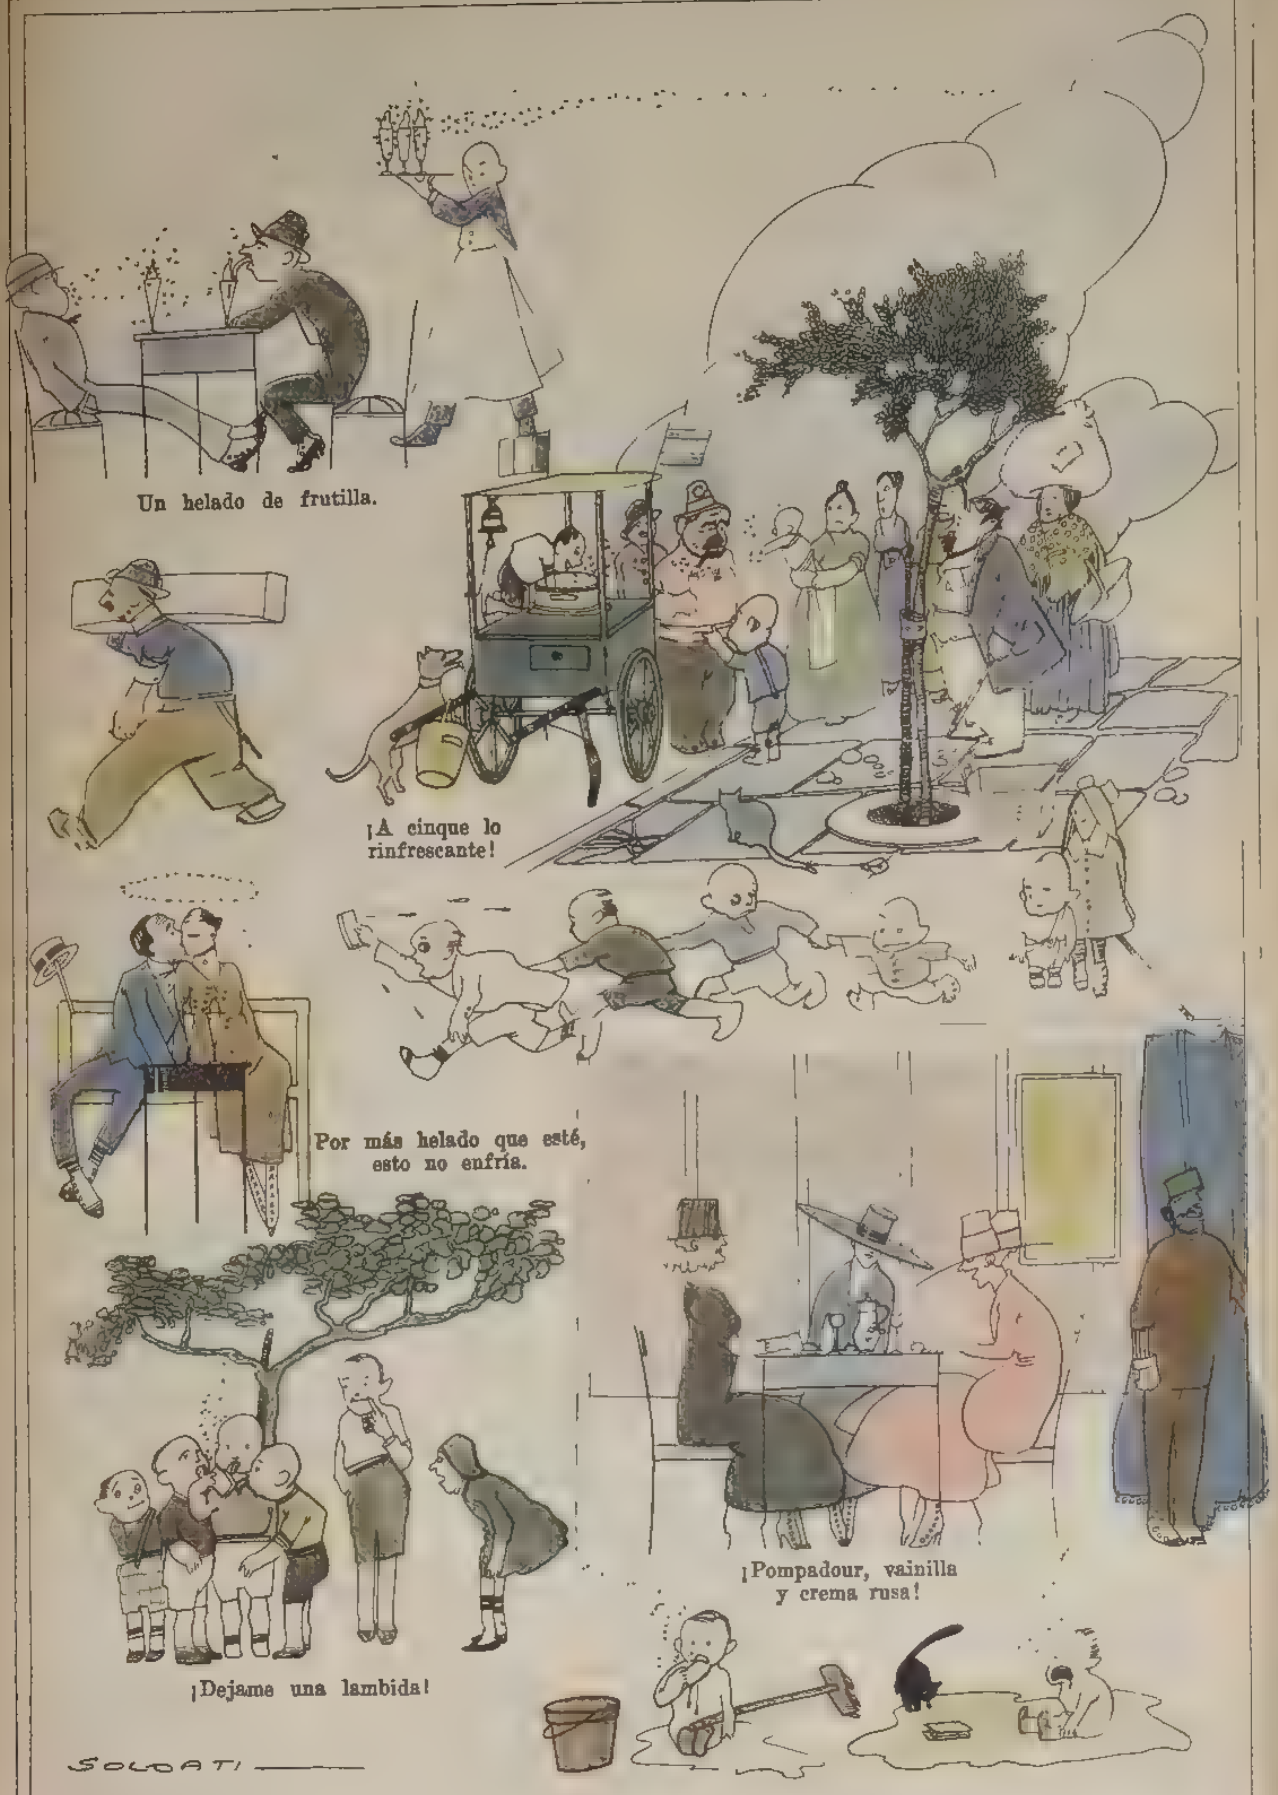 Un helado de frutilla.
¡A cinque lo
rinfrescante!
Por más helado que esté,
esto no enfría.
¡Pompadour, vainilla
y crema rusa!
¡Dejame una lambida!
SOLDATI